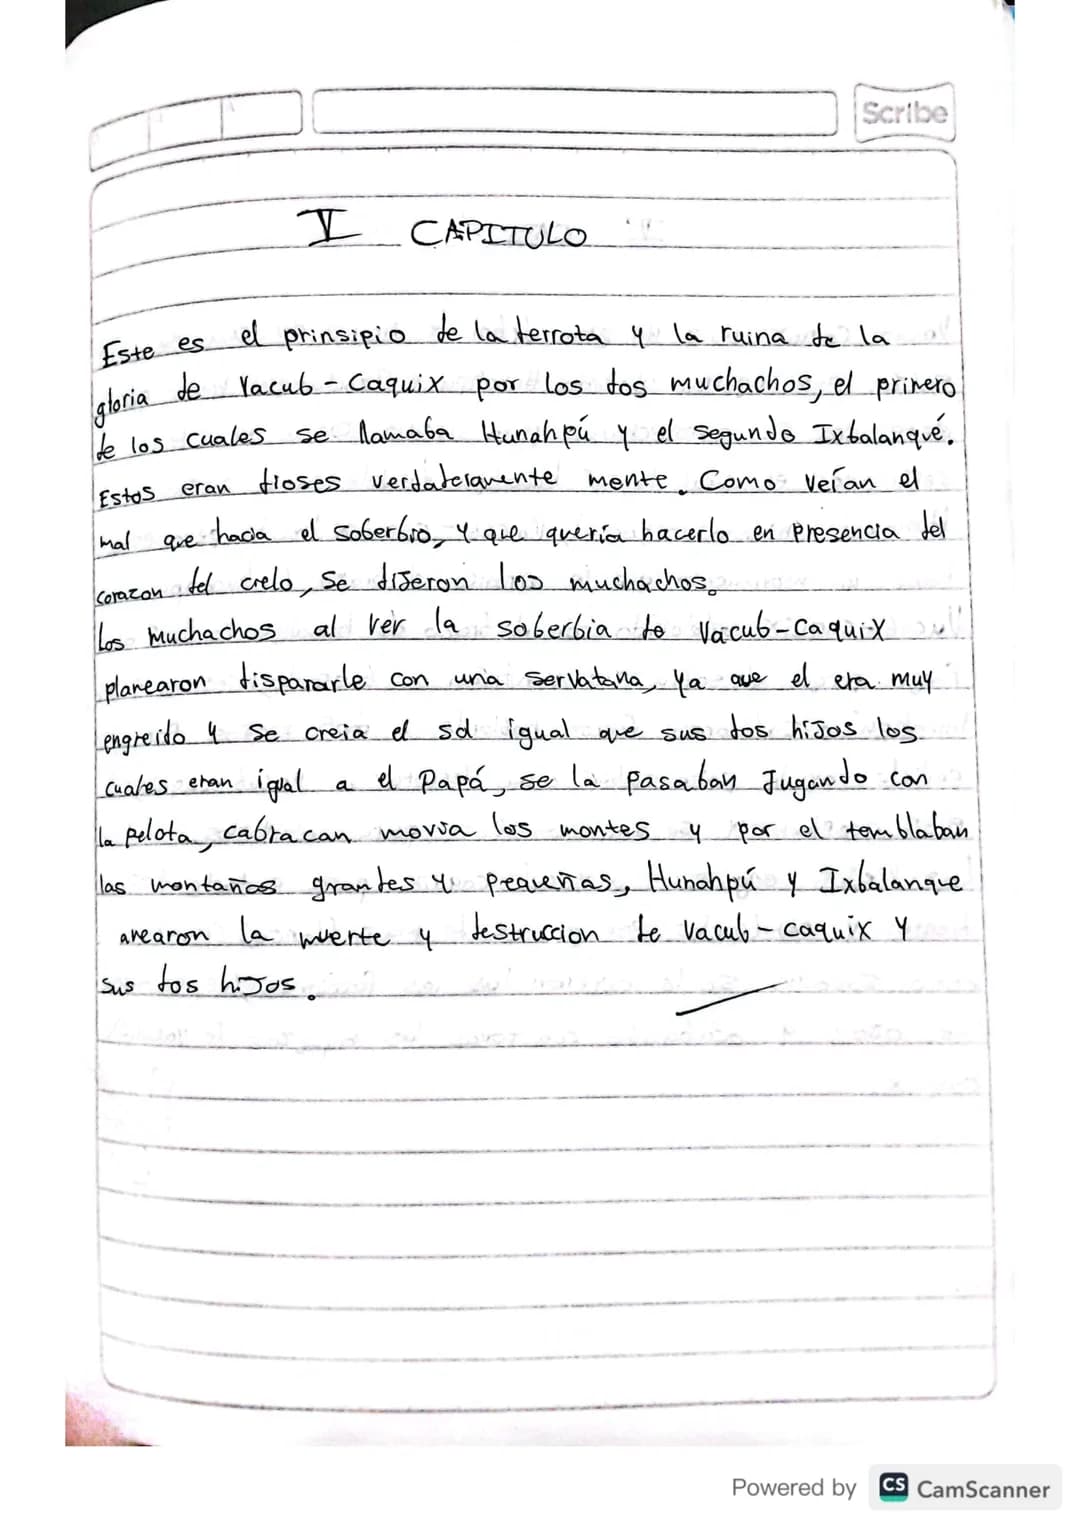 Scribe
V CAPITULO
Este es el prinsipio de la derrota y la ruina de la
gloria de Vacub-Caquix por los dos muchachos, el primero
de los cuales se llamaba Hunahpú y el segundo Ixbalanqué.
Estos eran dioses verdateramente mente. Como veían el
mal que hacia el soberbio, y que quería hacerlo en presencia del
corazon del cielo, se dijeron los muchachos.
los muchachos al ver la soberbia de Vacub-Caquix
planearon dispararle con una servatana, ya que el era muy
engreido y se creia el sol igual que sus dos hijos los
cuales eran igual a el Papá, se la pasaban jugando con
la pelota, cabracan movia los montes y por el temblaban
las montañas grandes y pequeñas, Hunahpú y Ixbalanque
la muerte y destruccion de Vacub-caquix y
sus dos hijos.
Powered by CS CamScanner